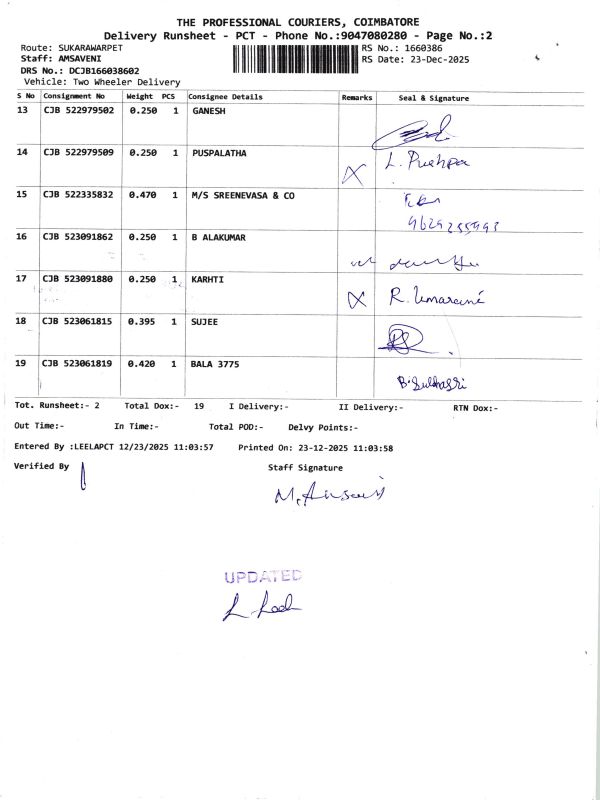 THE PROFESSIONAL COURIERS, COIMBATORE
Delivery Runsheet - PCT - Phone No.:9047080280 - Page No.:2
Route: SUKARAWARPET RS No.: 1660386
Staff: AMSAVENI RS Date: 23-Dec-2025
DRS No.: DCJB166038602
Vehicle: Two Wheeler Delivery
S No Consignment No Weight PCS Consignee Details Remarks Seal & Signature
13 CJB 522979502 0.250 1 GANESH
14 CJB 522979509 0.250 1 PUSPALATHA X L. Pushpa
15 CJB 522335832 0.470 1 M/S SREENEVASA & CO
9629255993
16 CJB 523091862 0.250 1 B ALAKUMAR
17 CJB 523091880 0.250 1 KARHTI X R. Umarani
18 CJB 523061815 0.395 1 SUJEE
19 CJB 523061819 0.420 1 BALA 3775
Tot. Runsheet:- 2 Total Dox:- 19 I Delivery:- II Delivery:- RTN Dox:-
Out Time:- In Time:- Total POD:- Delvy Points:-
Entered By :LEELAPCT 12/23/2025 11:03:57 Printed On: 23-12-2025 11:03:58
Verified By Staff Signature
UPDATED